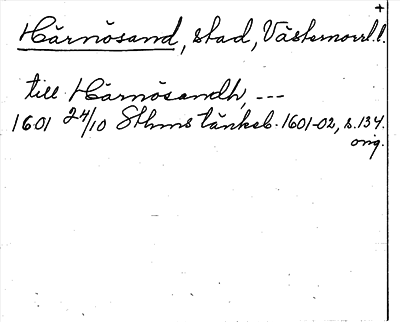 +
Härnösand, stad, Västernorrl.l.
till Härnösandh, ---
1601 24/10 Sthms tänkeb. 1601-02, s. 134.
orig.